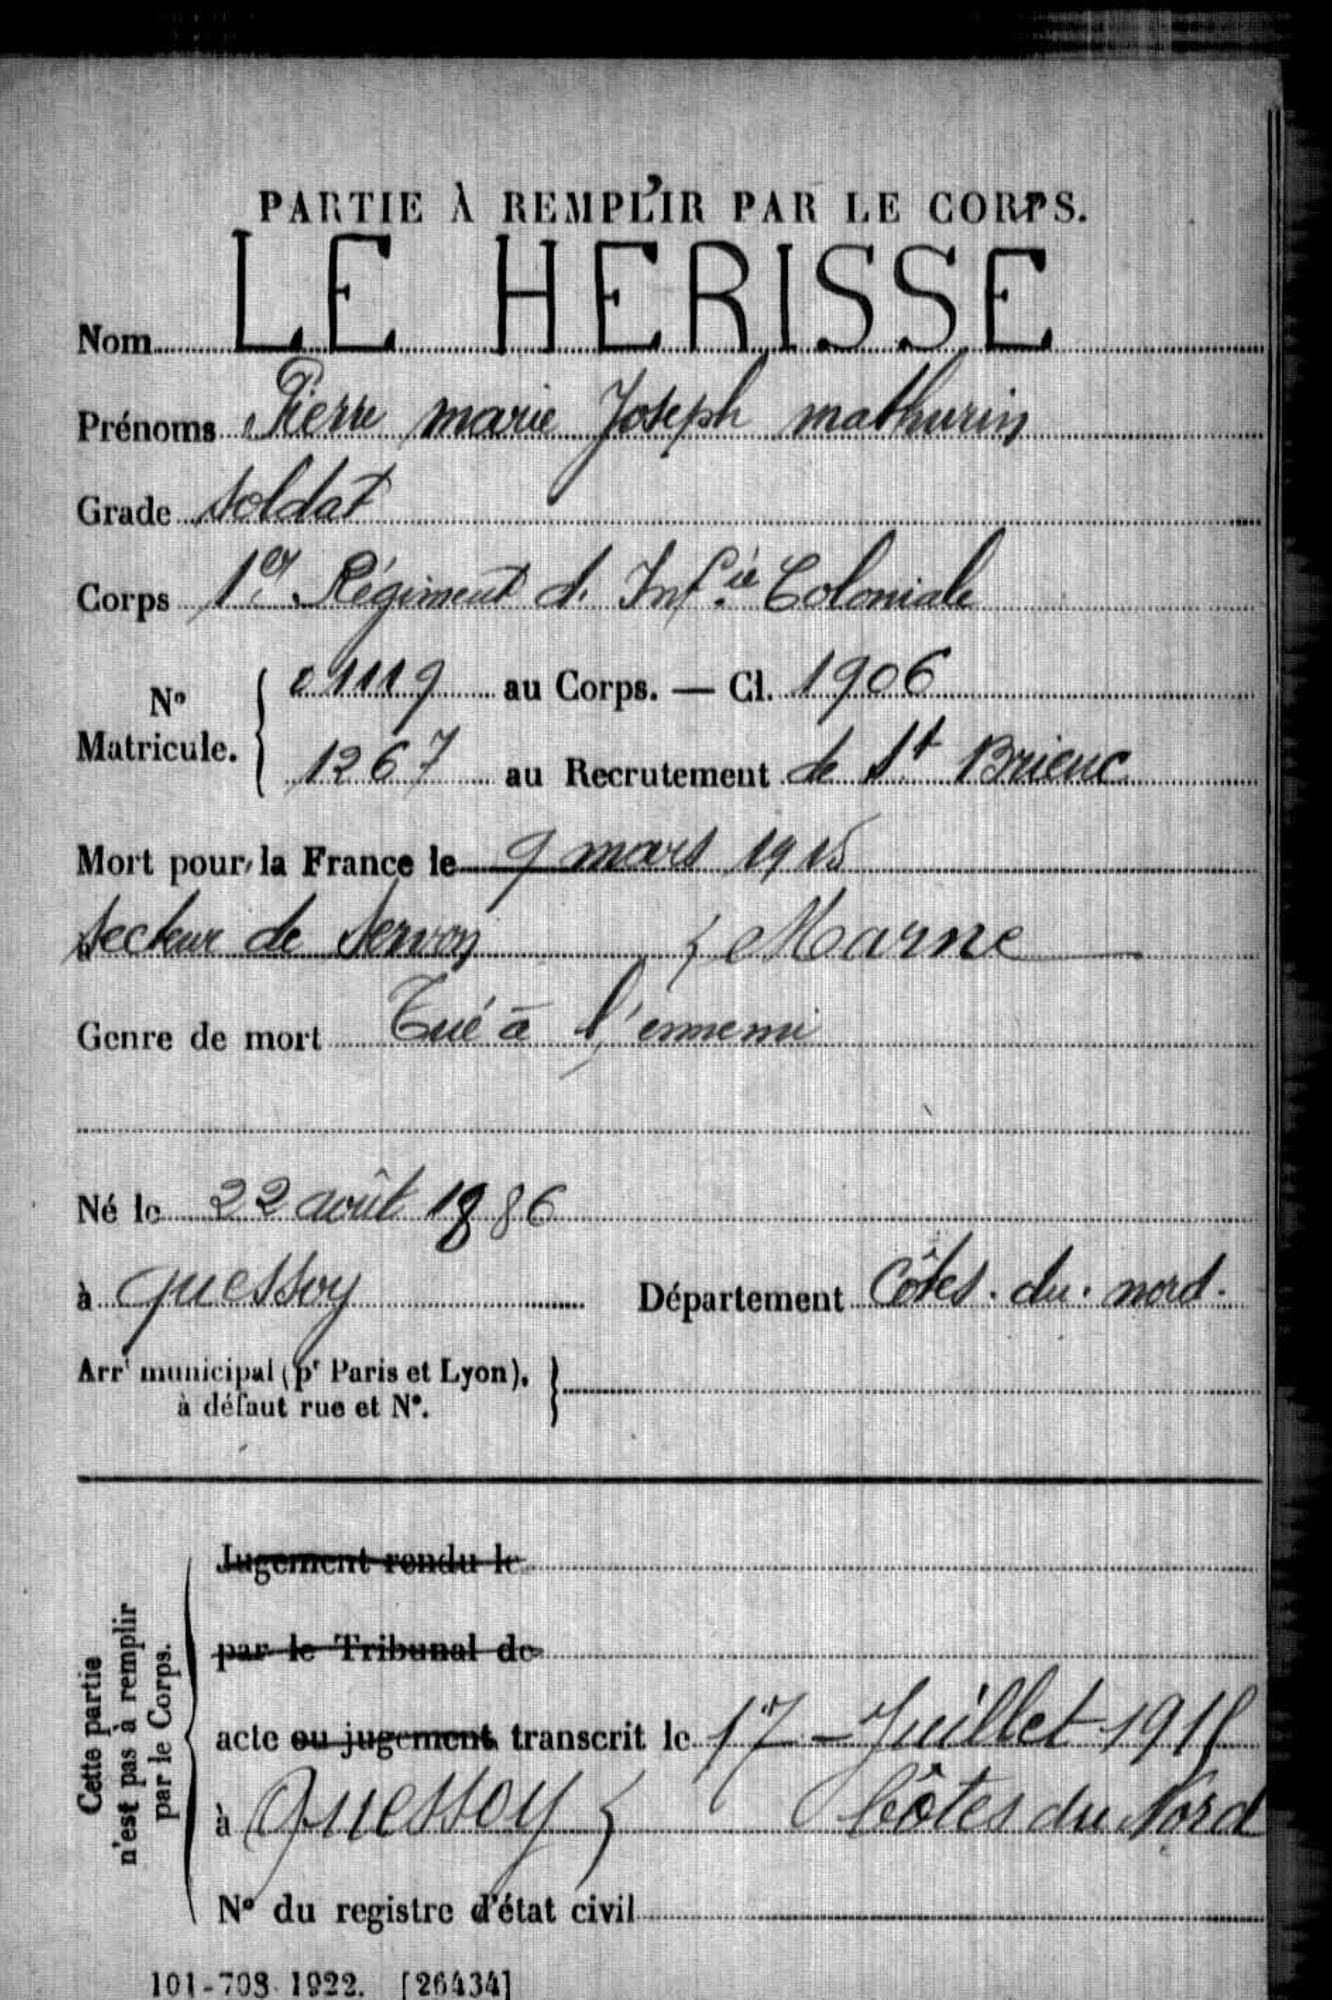 PARTIE À REMPLIR PAR LE CORPS.
Nom LE HERISSE
Prénoms Pierre marie Joseph mathurin
Grade soldat
Corps 1er Régiment d. Inf.ie Coloniale
No Matricule. { 01119 au Corps. — Cl. 1906
1267 au Recrutement de St Brieuc
Mort pour la France le 9 mars 1915
à secteur de Servon (Marne
Genre de mort Tué à l'ennemi
Né le 22 août 1886
à quessoy Département Côtes. du. nord.
Arrt municipal (pr Paris et Lyon), à défaut rue et No. }
Cette partie n'est pas à remplir par le Corps.
Jugement rendu le
par le Tribunal de
acte ou jugement transcrit le 17 - Juillet 1915
à Quessoy (Côtes du Nord
No du registre d'état civil
101-708. 1922. [26434]